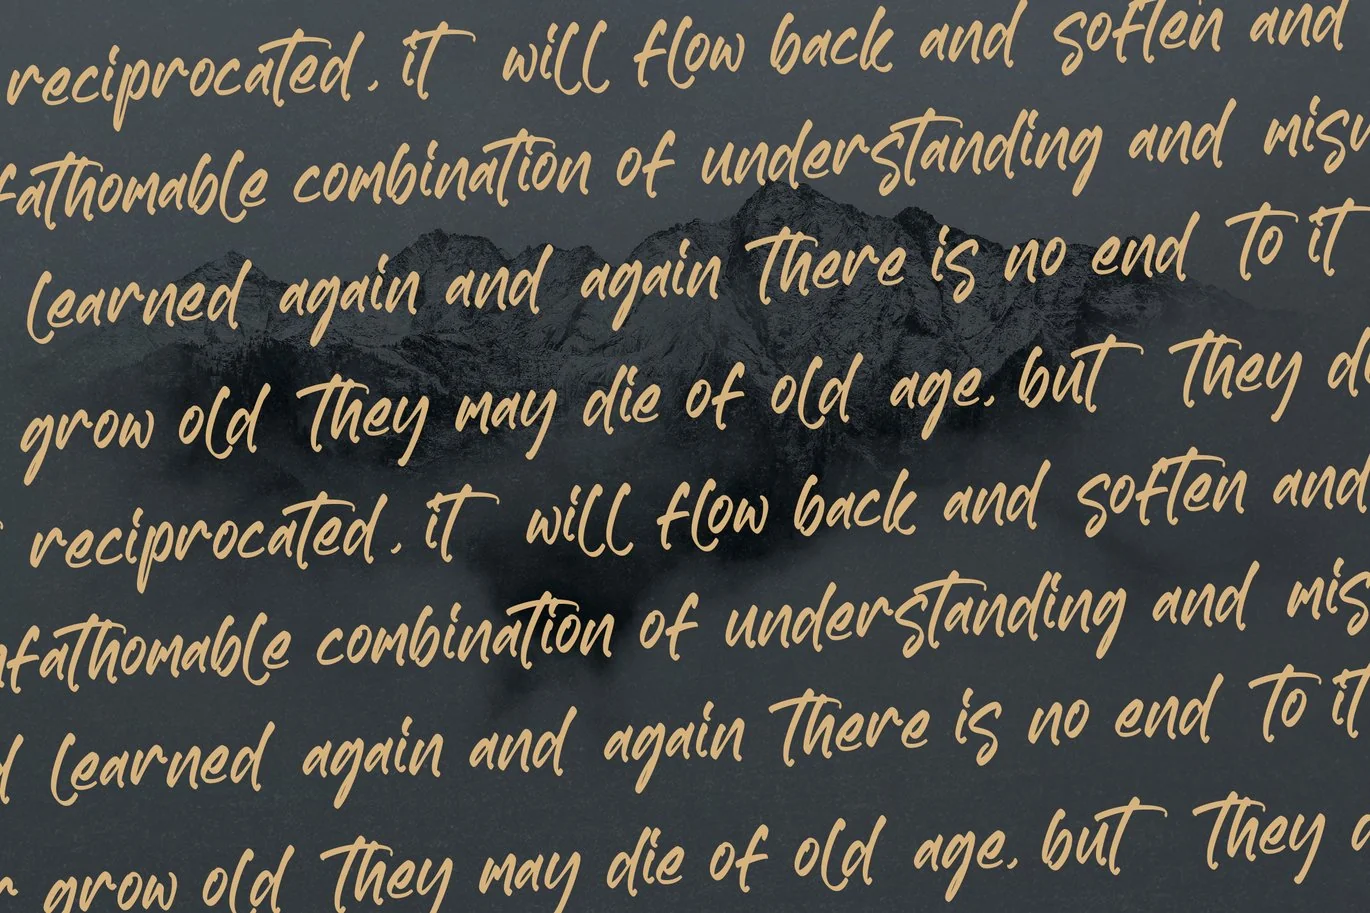 reciprocated, it will flow back and soften and
fathomable combination of understanding and
learned again and again there is no end to it
grow old they may die of old age, but they
reciprocated, it will flow back and soften and
nfathomable combination of understanding and mis
d learned again and again there is no end to it
r grow old they may die of old age, but they